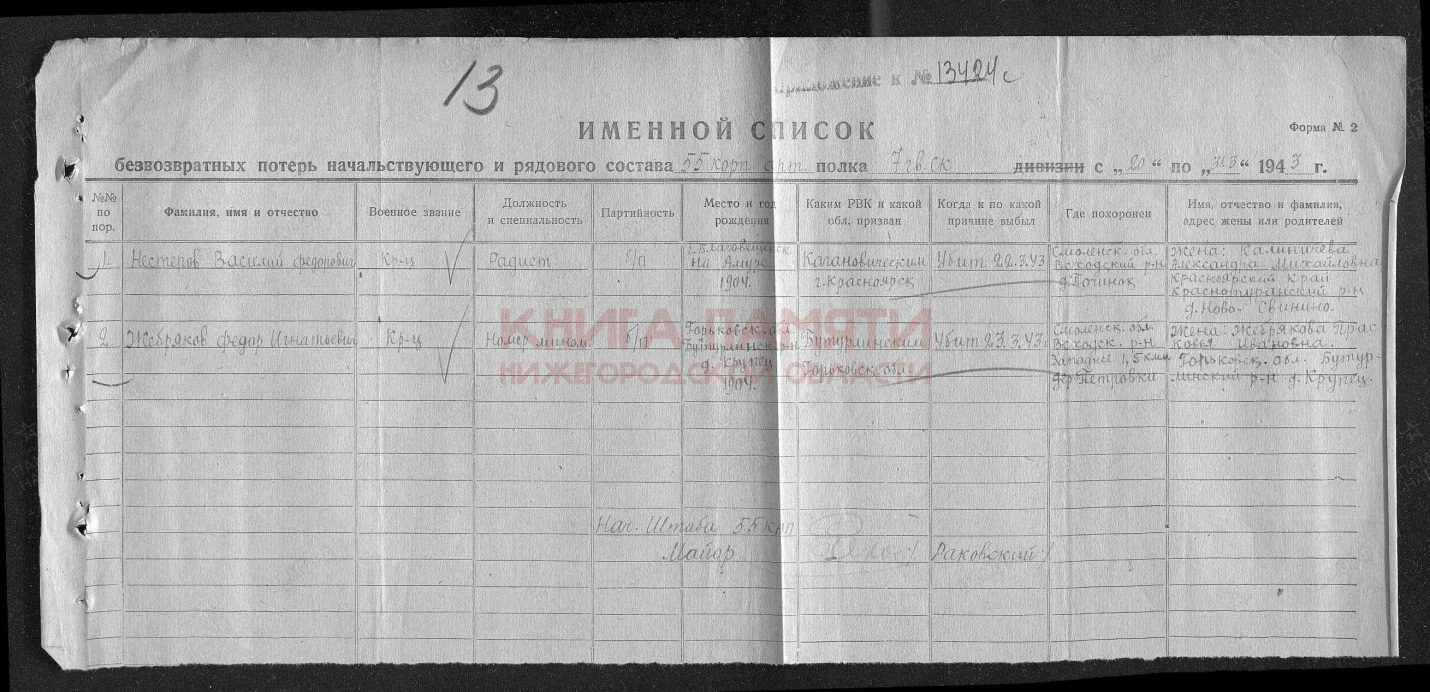 13
приложение к № 13424с
ИМЕННОЙ СПИСОК
Форма № 2
безвозвратных потерь начальствующего и рядового состава 55 корп. арт. полка 7 гв. ск дивизии с „20“ по „31.3“ 1943 г.
№№ по пор.
Фамилия, имя и отчество
Военное звание
Должность и специальность
Партийность
Место и год рождения
Каким РВК и какой обл. призван
Когда и по какой причине выбыл
Где похоронен
Имя, отчество и фамилия, адрес жены или родителей
1. Нестеров Василий Федорович
Кр-ц
Радист
б/п
г. Благовещенск
на Амуре
1904.
Кагановическим
г. Красноярск
Убит 22.3.43
Смоленск. обл.
Всходский р-н
д. Починок
жена: Калиничева
Александра Михайловна
Красноярский край
Краснотуранский р-н
д. Ново-Свинино.
2. Жебряков Федор Игнатьевич
Кр-ц
Номер мином.
б/п
Горьковск. обл.
Бутурлинск. р-н
д. Крупец
1904.
Бутурлинским
Горьковск. обл.
Убит 23.3.43.
Смоленск. обл.
Всходск. р-н
Западнее 1,5 км
дер. Петровки
Жена: Жебрякова Прас
ковья Ивановна.
Горьковск. обл. Бутур-
линский р-н д. Крупец.
КНИГА ПАМЯТИ
НИЖЕГОРОДСКОЙ ОБЛАСТИ
Нач. Штаба 55 кап
Майор
/Раковский/